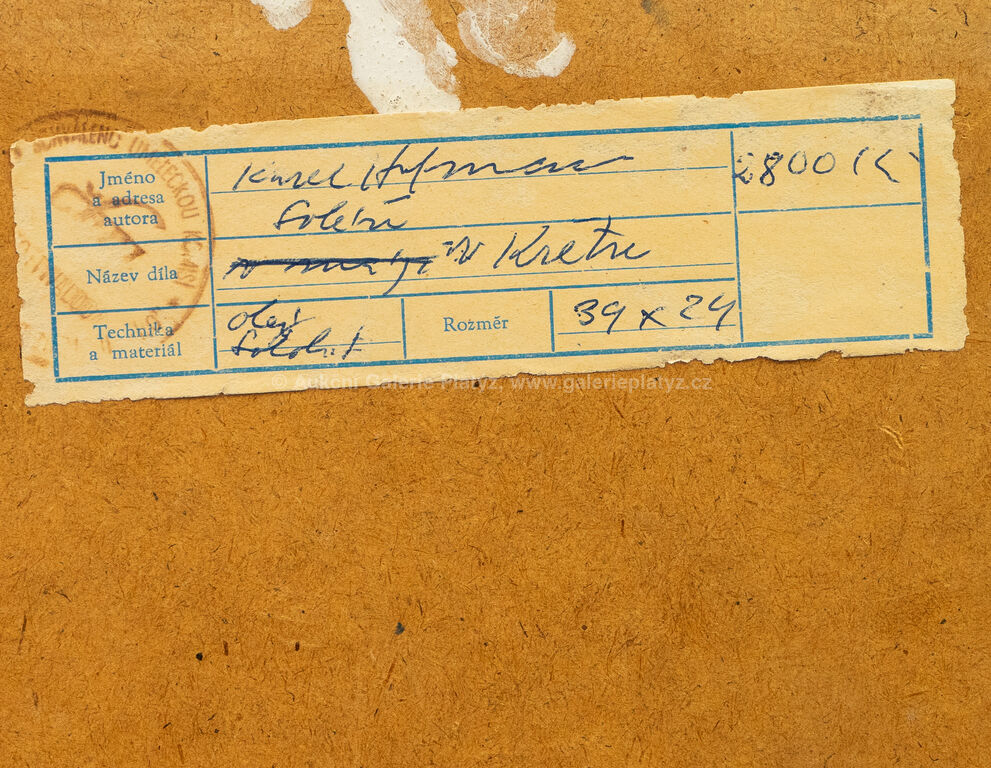 Jméno
a adresa
autora
Karel Hofman
2800 Kč
Název díla
V Krětu
Technika
a materiál
olej
sololit
Rozměr
39 x 24
© Aukční Galerie Platýz, www.galerieplatyz.cz